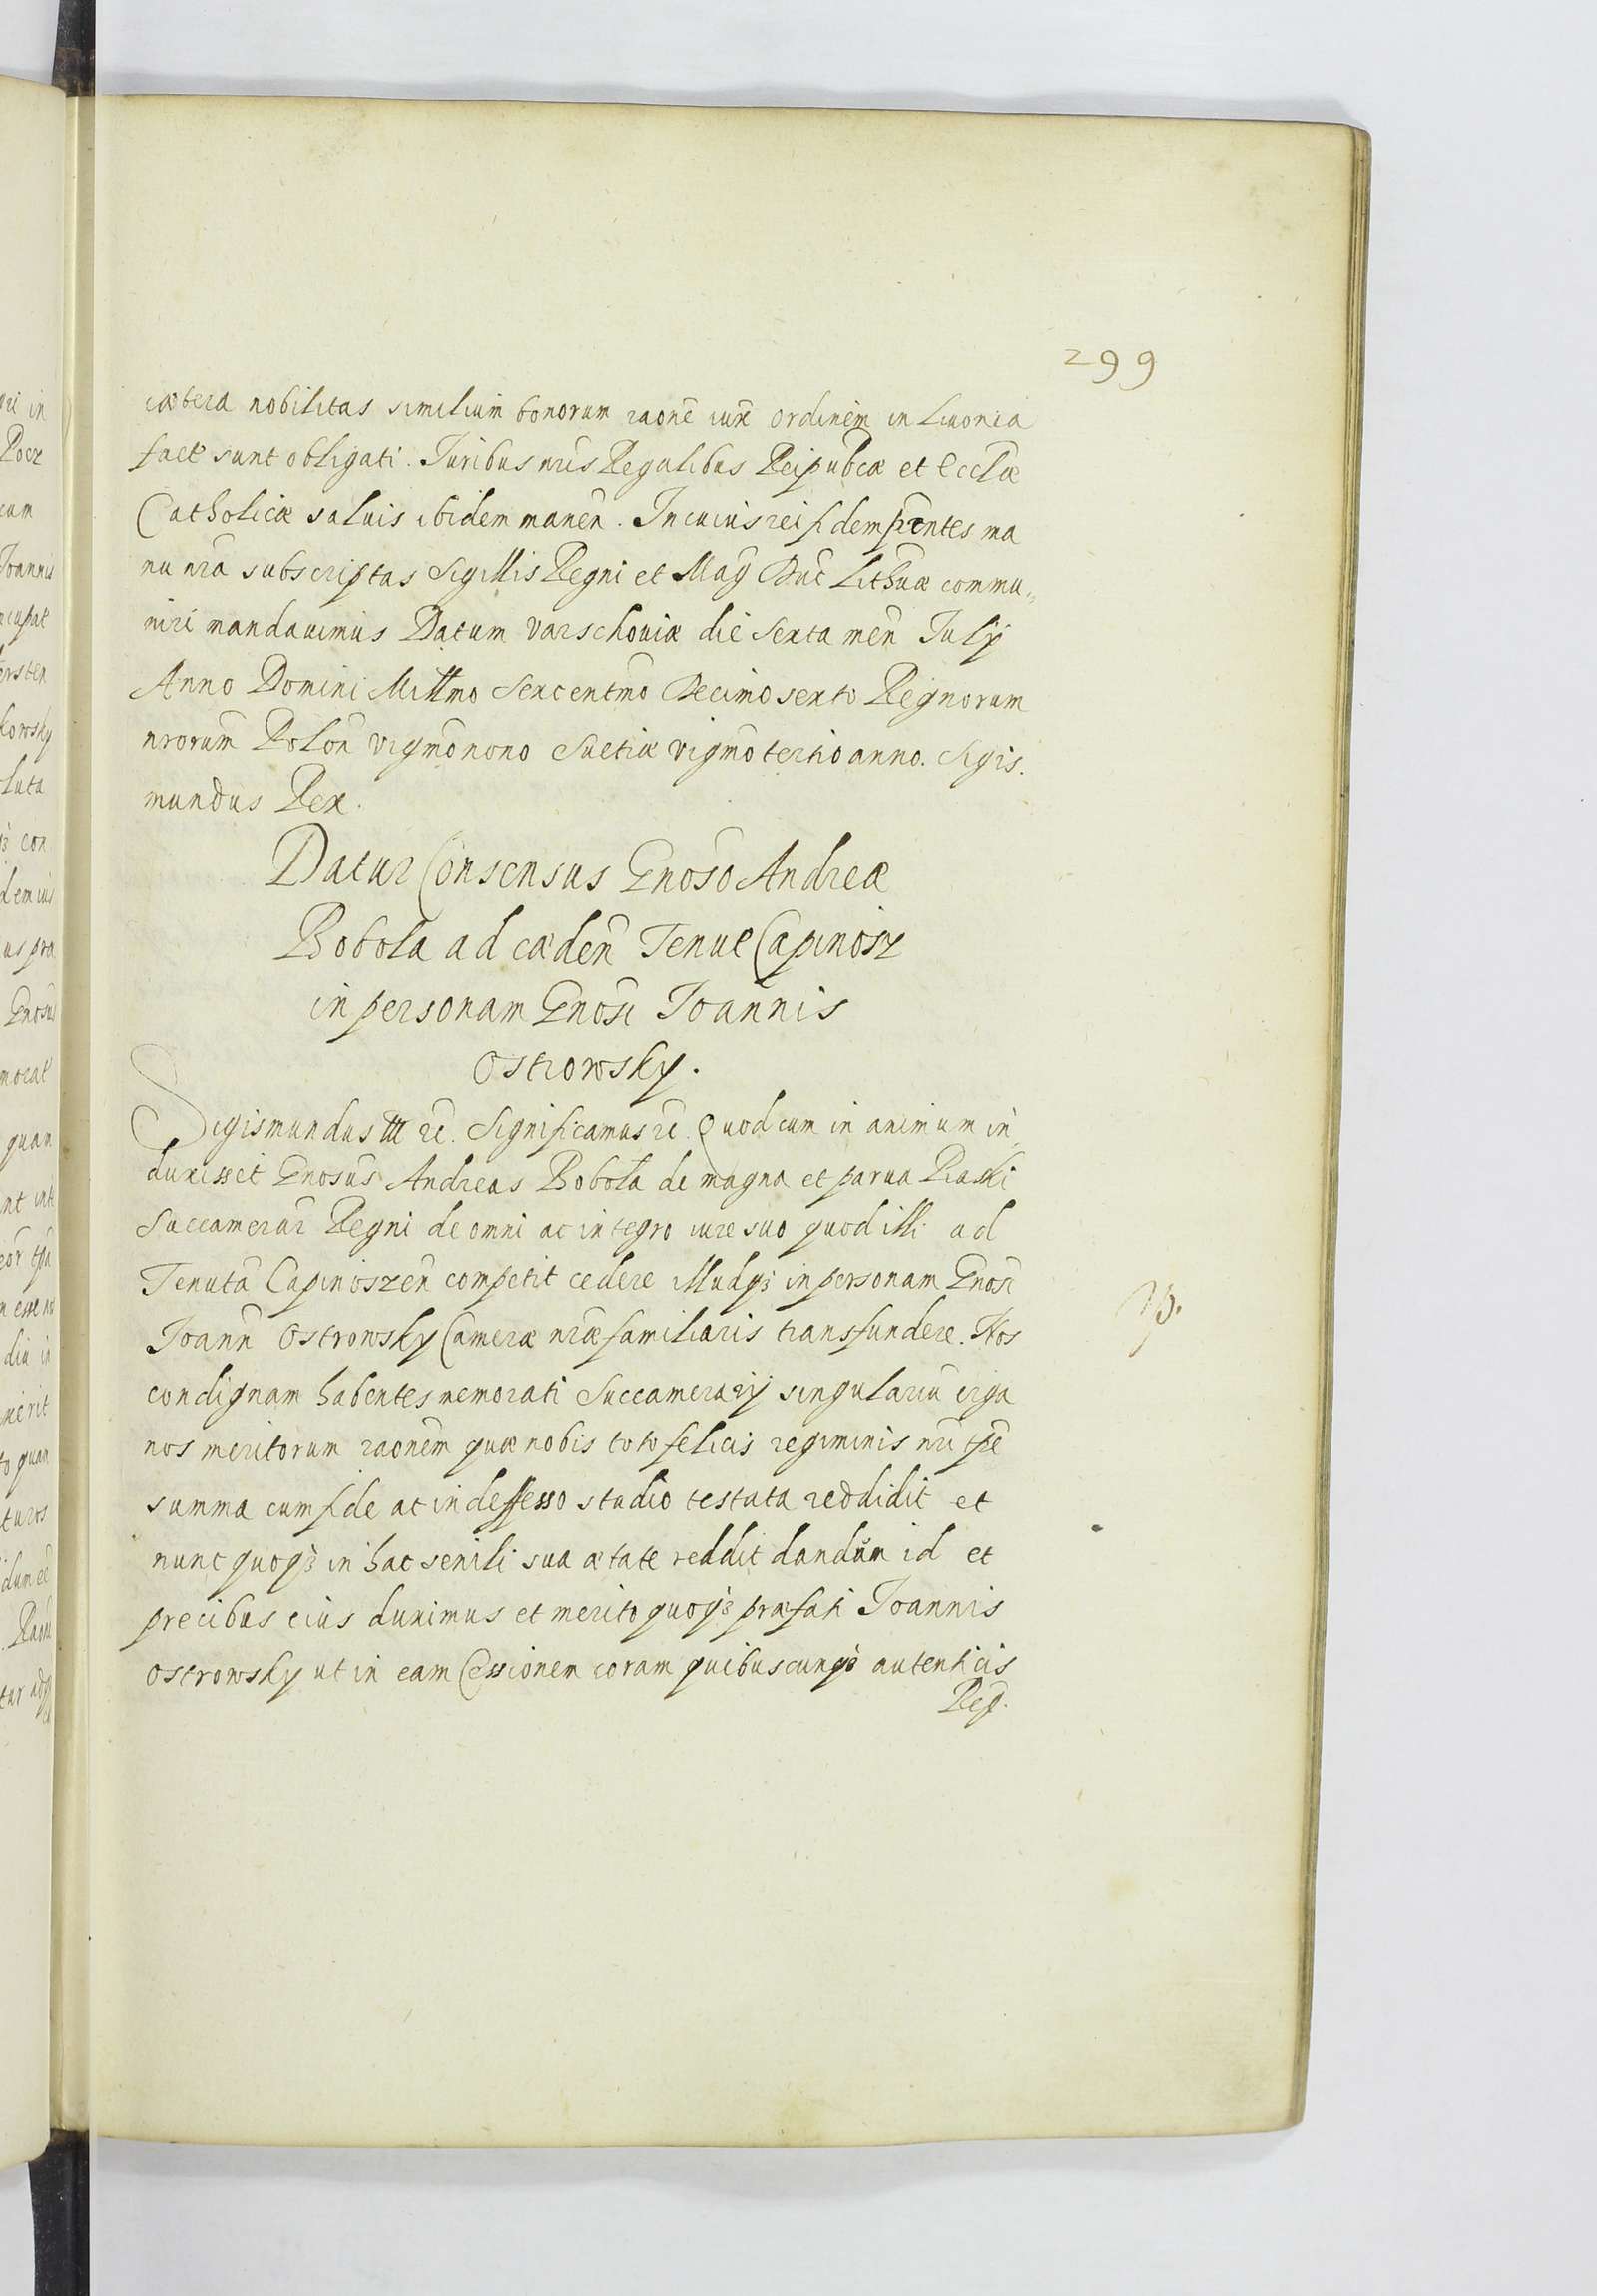 299
cætera nobilitas similium bonorum raōne iure ordinem in Livonia
fact sunt obligati. Juribus nr̄is Regalibus Reipublcæ et Eccl̄æ
Catholicæ salvis ibidem manen̄. In cuius rei fidem pr̄entes ma
nu nr̄a subscriptas Sigillis Regni et Mag Duc̄ Lith̄uæ commu„
niri mandavimus Datum Varschoviæ die Sexta men̄ July
Anno Domini Millmo Sexcentmo Decimo sexto Regnorum
nrorum̄ Polon̄ vigmo nono Suetiæ vigmo tertio anno. Sigis.
mundus Rex.
Datur Consensus Gnoso Andreæ
Bobola ad cæden̄ Tenut Capinosz
in personam Gnosi Joannis
Ostrowsky.
Sigismundus III ꝛc. Significamus ꝛc. Quod cum in animum in
duxisset Gnosus Andreas Bobola de magna et parva Piaski
Succamerar Regni de omni ac integro iure suo quod illi ad
Tenutā Capinioszen̄ competit cedere illudqꝫ in personam Gnosi
Joann̄ Ostrowsky Cameræ nr̄æ familiaris transfundere. Nos
condignam habentes memorati Succamerarij singulariū erga
nos meritorum raōnem quæ nobis toto felicis regiminis nr̄i tp̄e
summa cum fide ac indeffesso studio testata reddidit et
nunc quoqꝫ in hac senili sua ætate reddit dandum id et
precibus eius duximus et merito quoqꝫ præfati Joannis
Ostrowsky ut in eam Cessionem coram quibuscunqꝫ autenticis
Reg.